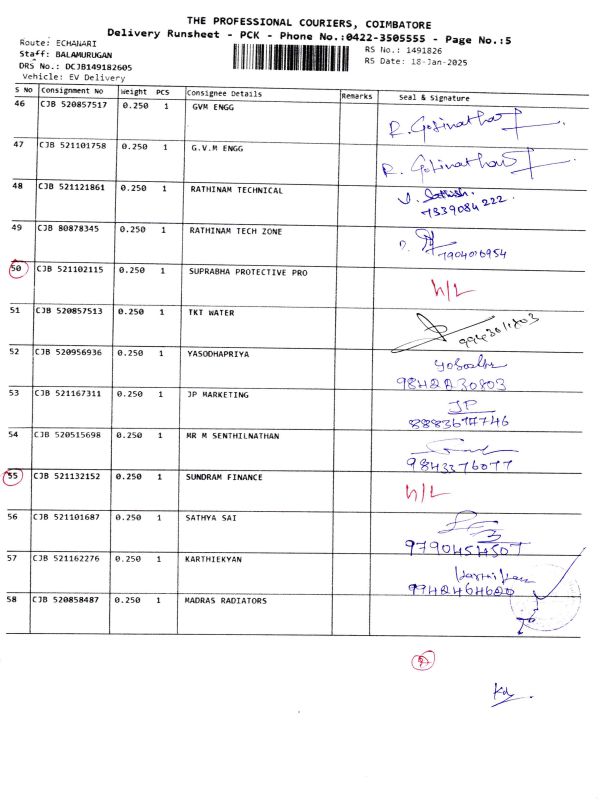 THE PROFESSIONAL COURIERS, COIMBATORE
Delivery Runsheet - PCK - Phone No.:0422-3505555 - Page No.:5
Route: ECHANARI
RS No.: 1491826
Staff: BALAMURUGAN
RS Date: 18-Jan-2025
DRS No.: DCJB149182605
Vehicle: EV Delivery
S No Consignment No Weight PCS Consignee Details Remarks Seal & Signature
46 CJB 520857517 0.250 1 GVM ENGG R. Gopinathan
47 CJB 521101758 0.250 1 G.V.M ENGG R. Gopinathan
48 CJB 521121861 0.250 1 RATHINAM TECHNICAL
7339084222.
49 CJB 80878345 0.250 1 RATHINAM TECH ZONE
7904016954
50 CJB 521102115 0.250 1 SUPRABHA PROTECTIVE PRO N/L
51 CJB 520857513 0.250 1 TKT WATER
52 CJB 520956936 0.250 1 YASODHAPRIYA
9842230803
53 CJB 521167311 0.250 1 JP MARKETING JP
54 CJB 520515698 0.250 1 MR M SENTHILNATHAN
9843376077
55 CJB 521132152 0.250 1 SUNDRAM FINANCE N/L
56 CJB 521101687 0.250 1 SATHYA SAI
9790454507
57 CJB 521162276 0.250 1 KARTHIEKYAN
9942464620
58 CJB 520858487 0.250 1 MADRAS RADIATORS